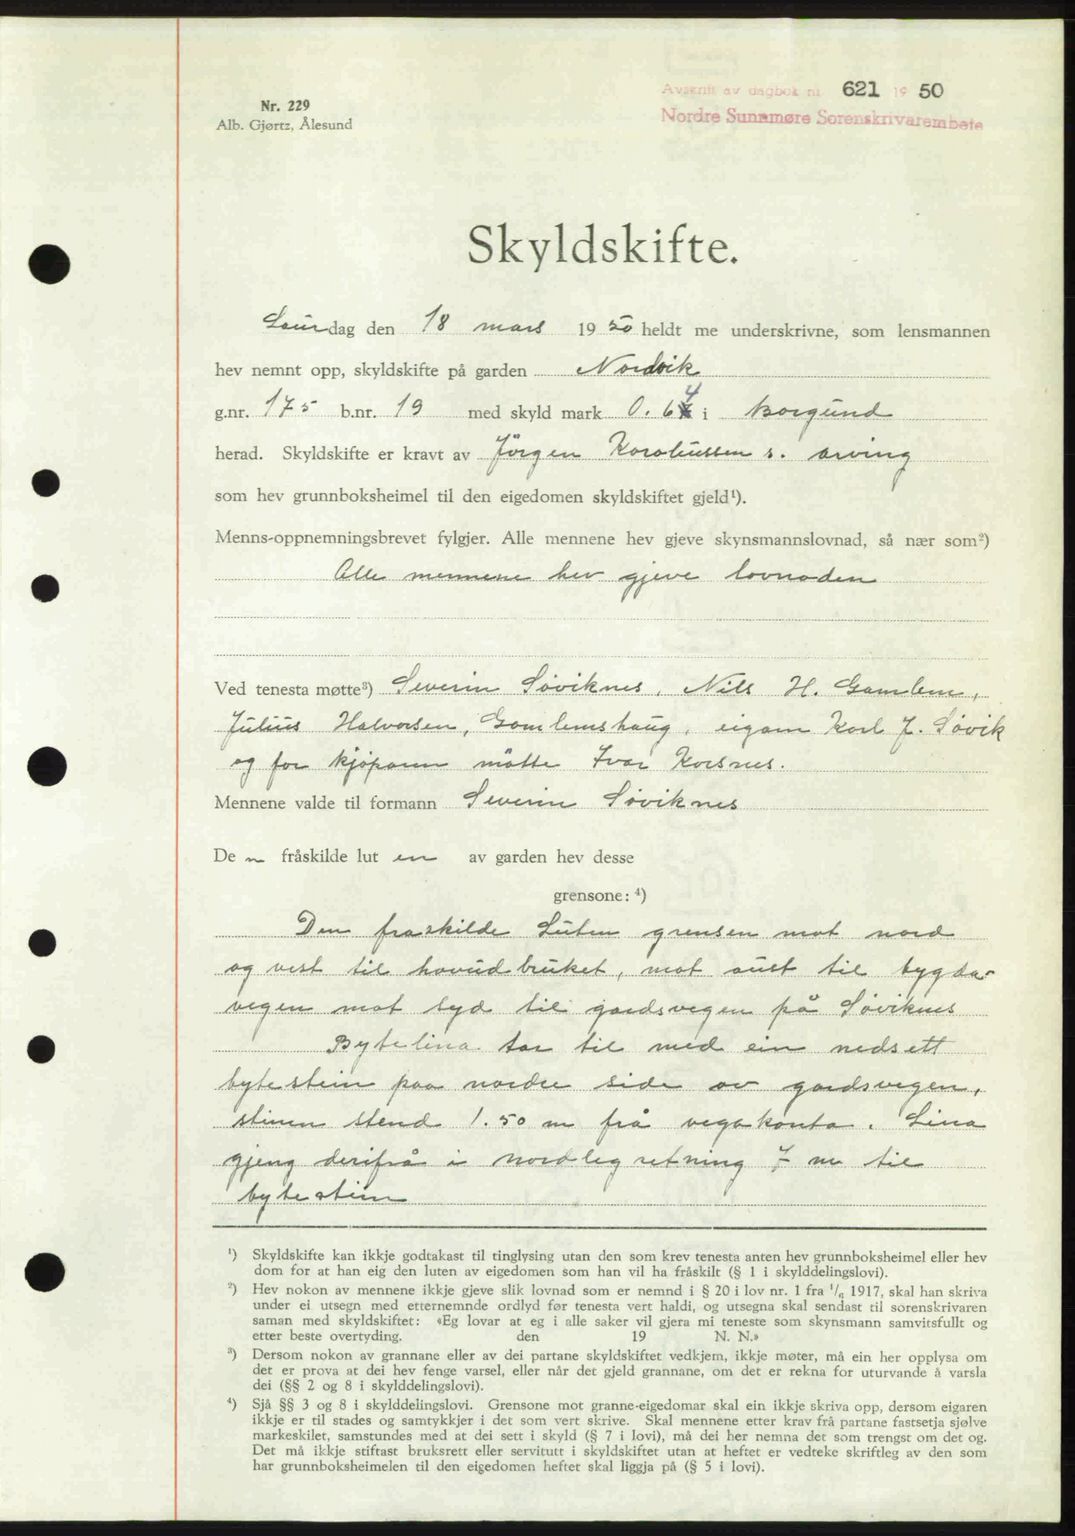 Nr. 229
Alb. Gjørtz, Ålesund
Avskrift av dagbok nr. 621 19 50
Nordre Sunnmøre Sorenskrivarembete
Skyldskifte.
Laurdag den 18 mars 19 50 heldt me underskrivne, som lensmannen
hev nemnt opp, skyldskifte på garden Nordvik
g.nr. 175 b.nr. 19 med skyld mark 0.64 i Borgund
herad. Skyldskifte er kravt av Jörgen Korsnessen s. arving
som hev grunnboksheimel til den eigedomen skyldskiftet gjeld¹).
Menns-oppnemningsbrevet fylgjer. Alle mennene hev gjeve skynsmannslovnad, så nær som²)
Alle mennene hev gjeve lovnaden
Ved tenesta møtte³) Severin Søviknes, Nils H. Gamlem,
Julius Halvorsen, Gamlemshaug, eigarn Karl J. Søvik
og for kjöparen mötte Ivar Korsnes.
Mennene valde til formann Severin Søviknes
De n fråskilde lut en av garden hev desse
grensone: ⁴)
Den fraskilde Luten grensen mot nord
og vest til hovudbruket, mot aust til bygda-
vegen mot syd til gardsvegen på Søviknes
Bytelina tar til med ein nedsett
bytestein paa nordre side av gardsvegen,
stinen stend 1.50 m frå vegakanta. Lina
gjeng derifrå i nordleg retning 7 m til
bytestein
¹) Skyldskifte kan ikkje godtakast til tinglysing utan den som krev tenesta anten hev grunnboksheimel eller hev
dom for at han eig den luten av eigedomen som han vil ha fråskilt (§ 1 i skylddelingslovi).
²) Hev nokon av mennene ikkje gjeve slik lovnad som er nemnd i § 20 i lov nr. 1 fra ¹/₆ 1917, skal han skriva
under ei utsegn med etternemnde ordlyd før tenesta vert haldi, og utsegna skal sendast til sorenskrivaren
saman med skyldskiftet: «Eg lovar at eg i alle saker vil gjera mi teneste som skynsmann samvitsfullt og
etter beste overtyding. den 19 N. N.»
³) Dersom nokon av grannane eller av dei partane skyldskiftet vedkjem, ikkje møter, må ein her opplysa om
det er prova at dei hev fenge varsel, eller når det gjeld grannane, om det er rekna for uturvande å varsla
dei (§§ 2 og 8 i skylddelingslovi).
⁴) Sjå §§ 3 og 8 i skylddelingslovi. Grensone mot granne-eigedomar skal ein ikkje skriva opp, dersom eigaren
ikkje er til stades og samtykkjer i det som vert skrive. Skal mennene etter krav frå partane fastsetja sjølve
markeskilet, samstundes med at dei sett i skyld (§ 7 i lovi), må dei her nemna det som trengst om det og.
Det må ikkje stiftast bruksrett eller servitutt i skyldskiftet utan at heftet er vedteke skriftleg av den som
har grunnboksheimelen til den eigedomen heftet skal liggja på (§ 5 i lovi).